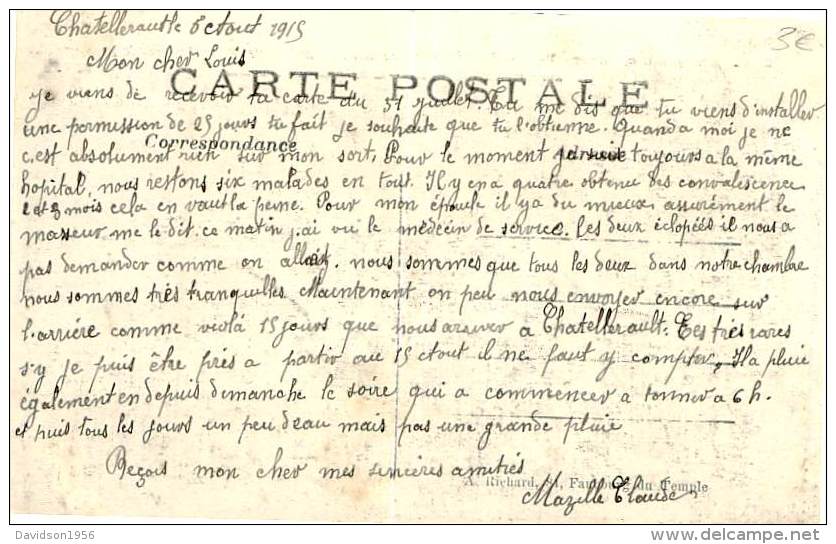 Chatellerault le 5 out 1915
3€
Mon cher Louis
CARTE POSTALE
je viens de recevoir ta carte du 31 juillet. Tu me dis que tu viens d'installer
une permission de 25 jours tu fait je souhaite que tu l'obtienne. Quand a moi je ne
Correspondance
c.est absolument rien sur mon sort. Pour le moment je suis toujours a la même
hopital, nous restons six malades en tout. Il y en a quatre obtenu des convalescence
2 et 3 mois cela en vaut la peine. Pour mon épaule il y a du mieux assurément le
masseur me le dit. ce matin j.ai vu le médecin de service. les deux éclopées il nous a
pas demander comme on allait. nous sommes que tous les deux dans notre chambre
nous sommes très tranquilles. Maintenant on peu nous envoyer encore sur
l'arrière comme violà 15 jours que nous arriver a Chatellerault. C'es très rares
s'y je puis être pris a partir au 15 out il ne faut y compter, Il a pluie
également en depuis demanche le soire qui a commencer a tonner a 6 h.
et puis tous les jours un peu deau mais pas une grande pluie
Reçois mon cher mes sincères amitiés
A. Richard, Faubourg du Temple
Mazille Claude
Davidson1956
delcampe.net